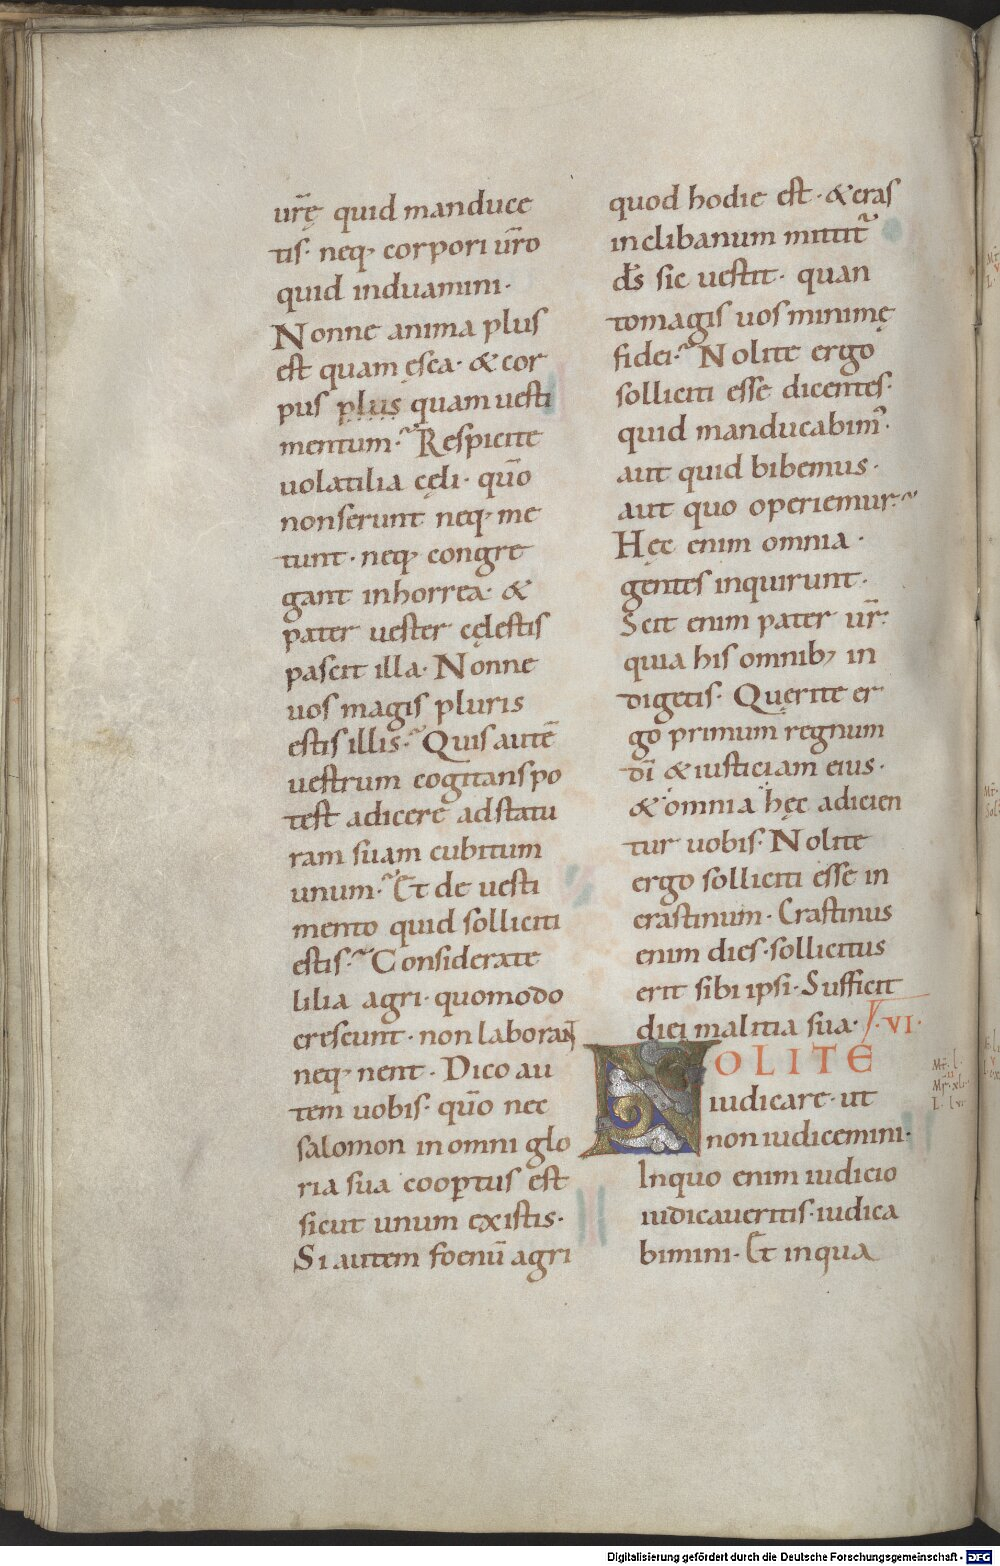 ur̄ę quid manduce
tis· neq; corpori ur̄o
quid induamini·
Nonne anima plus
est quam ęsca· & cor
pus plus quam uesti
mentum·? Respicite
uolatilia cęli· quō
non serunt neq; me
tunt· neq; congre
gant in horrea· &
pater uester cęlestis
pascit illa· Nonne
uos magis pluris
estis illis·? Quis autē
uestrum cogitans po
test adicere ad statu
ram suam cubitum
unum·? Et de uesti
mento quid solliciti
estis·? Considerate
lilia agri· quomodo
crescunt· non laborant
neq; nent· Dico au
tem uobis· quō nec
salomon in omni glo
ria sua coop̄tus est
sicut unum ex istis·
Si autem foenū agri
quod hodie est· & cras
in clibanum mittit̄
d̄s sic uestit· quan
to magis uos minimę
fidei·? Nolite ergo
solliciti esse dicentes·
quid manducabim᾽·
aut quid bibemus·
aut quo operiemur·?
Hęc enim omnia·
gentes inquirunt·
Scit enim pater ur̄·
quia his omnib; in
digetis· Quęrite er
go primum regnum
dī & iusticiam eius·
& omnia hęc adicien
tur uobis· Nolite
ergo solliciti esse in
crastinum· Crastinus
enim dies· sollicitus
erit sibi ipsi· Sufficit
diei malitia sua· ·VI·
NOLITE
iudicare· ut
non iudicemini·
In quo enim iudicio
iudicaueritis· iudica
bimini· Et in qua
Digitalisierung gefördert durch die Deutsche Forschungsgemeinschaft - DFG